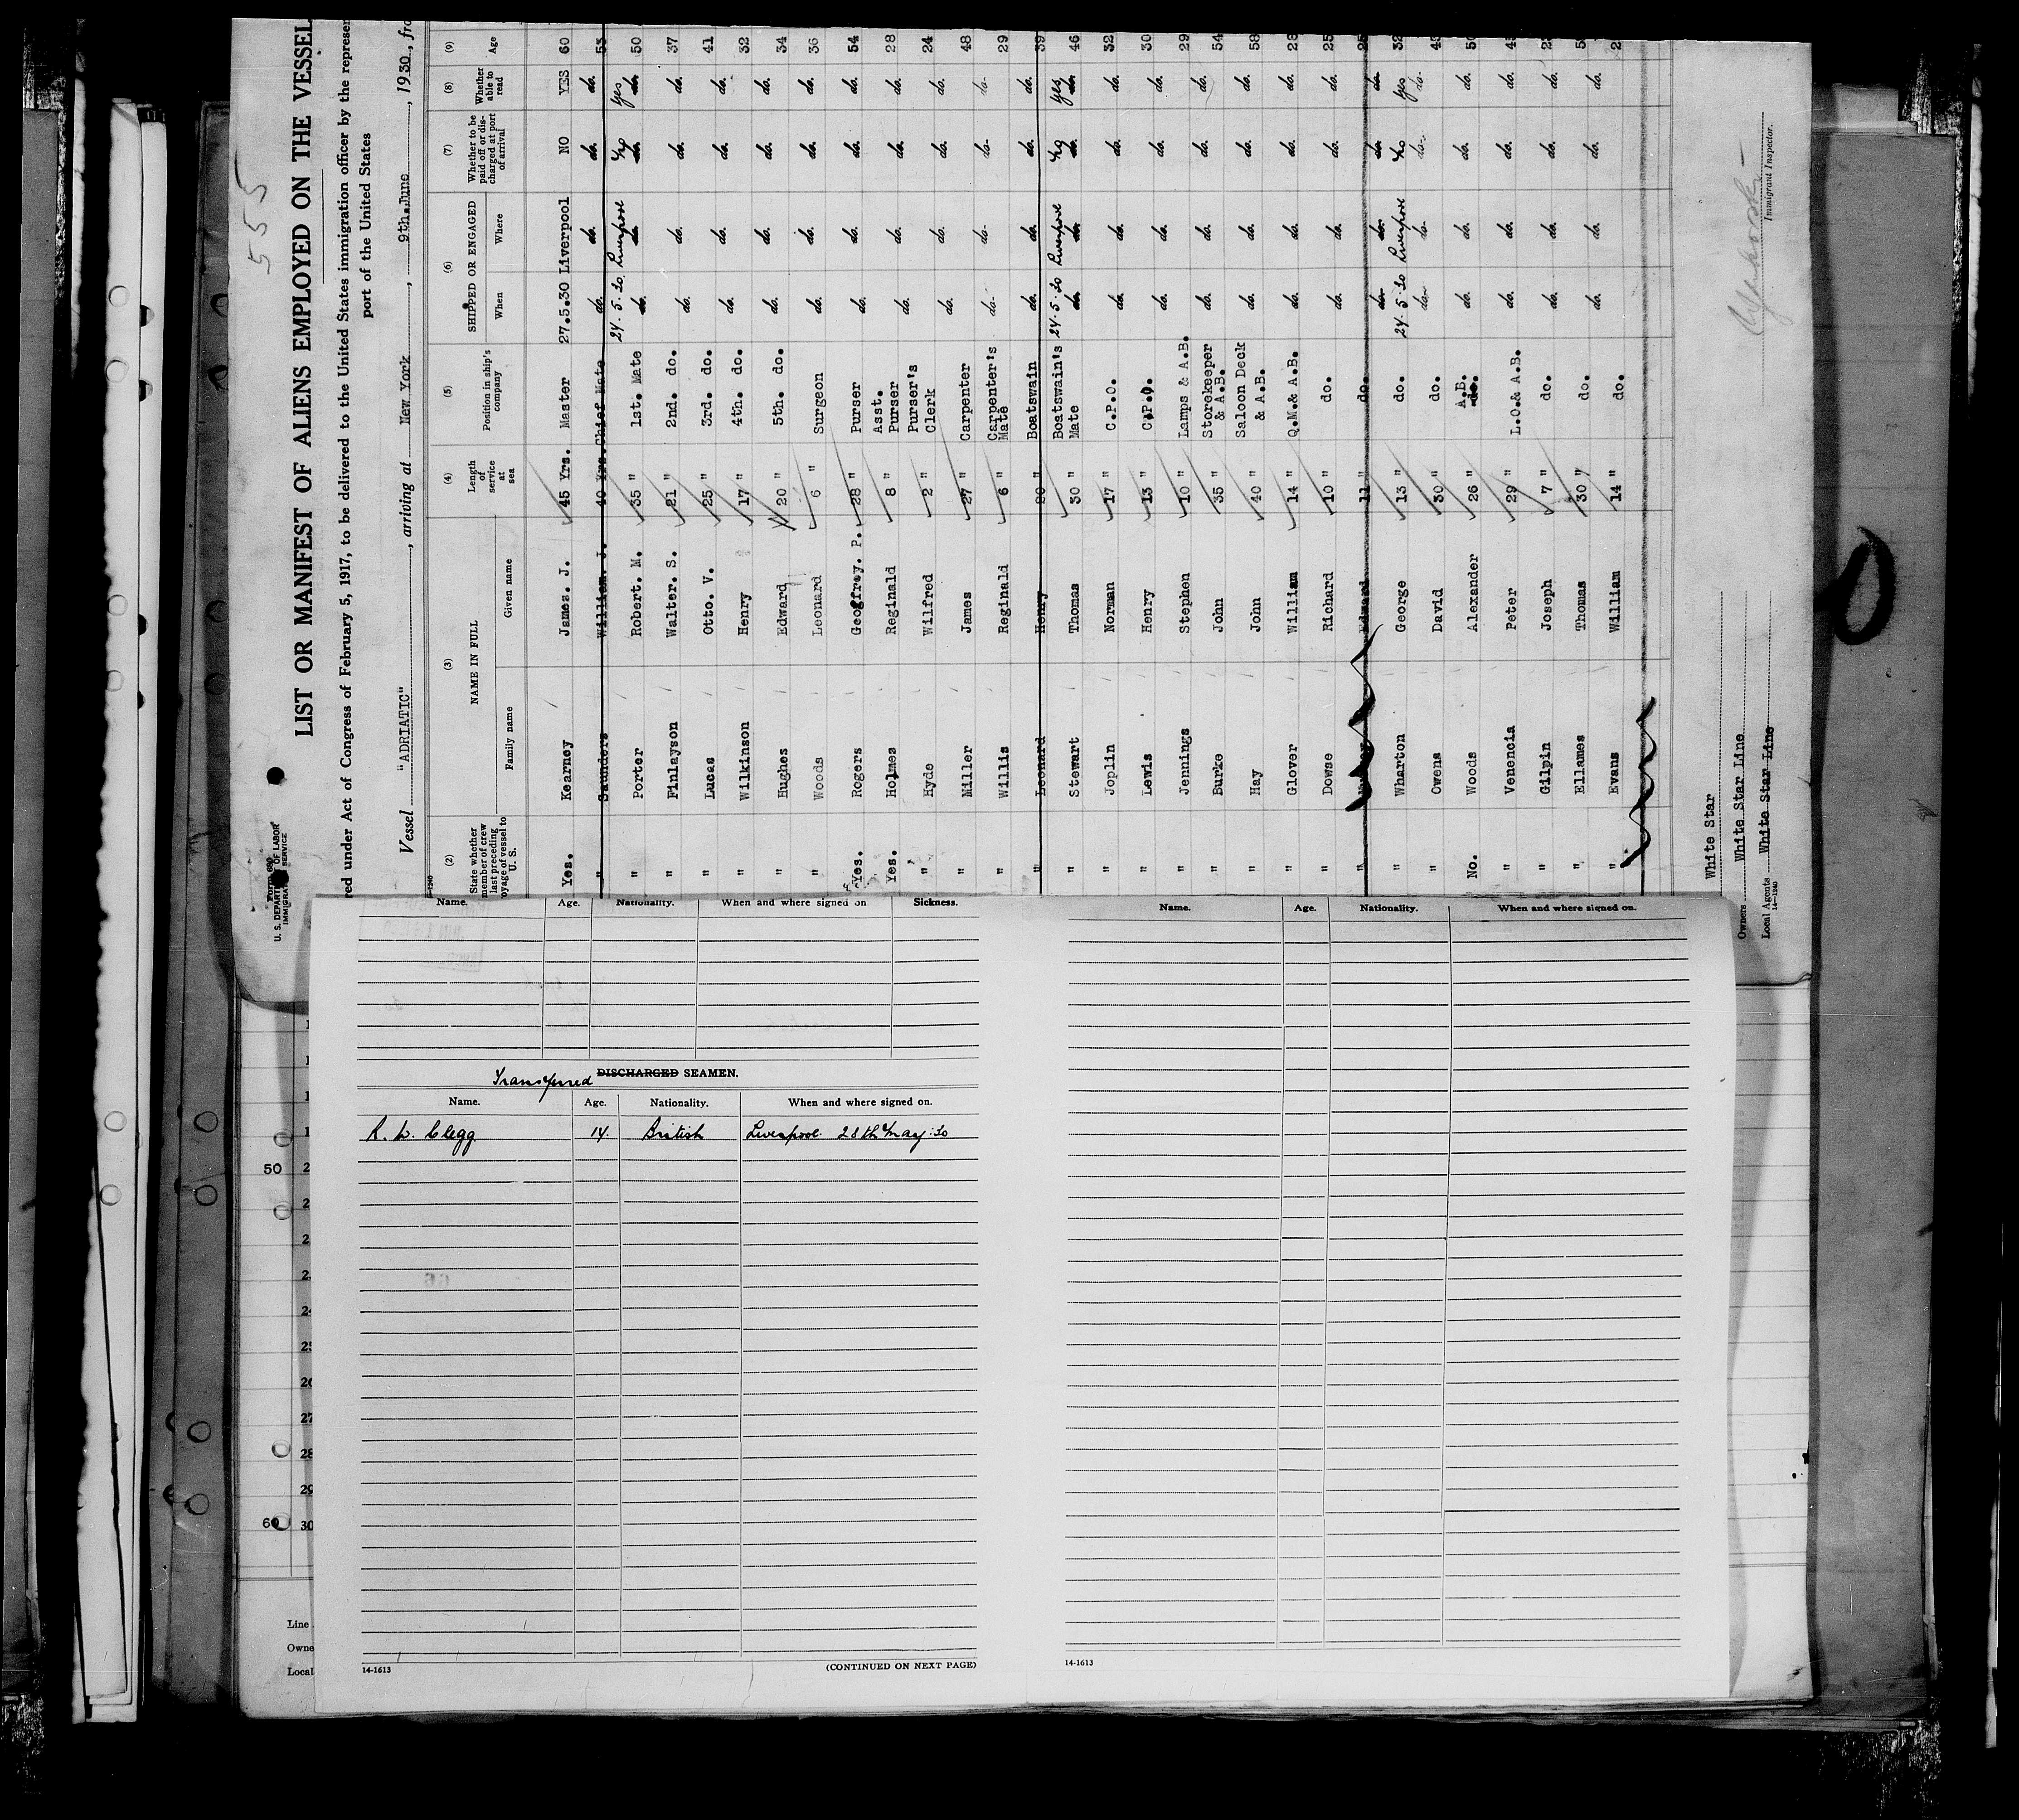 555
Form 680
U. S. DEPARTMENT OF LABOR
IMMIGRATION SERVICE
LIST OR MANIFEST OF ALIENS EMPLOYED ON THE VESSEL
red under Act of Congress of February 5, 1917, to be delivered to the United States immigration officer by the represen
port of the United States
Vessel "ADRIATIC", arriving at New York, 9th.June, 1930, fro
(2) (3) (4) (5) (6) (7) (8) (9)
State whether member of crew last preceding voyage of vessel to U. S. NAME IN FULL Family name Given name Length of service at sea Position in ship's company SHIPPED OR ENGAGED When Where Whether to be paid off or discharged at port of arrival Whether able to read Age
Yes. Kearney James. J. 45 Yrs. Master 27.5.30 Liverpool NO YES 60
" Saunders William. J. 40 Yrs. Chief Mate do. do. do. do. 53
" Porter Robert. M. 35 " 1st. Mate 24.5.30 Liverpool No yes do. do. do. do. 50
" Finlayson Walter. S. 21 " 2nd. do. do. do. do. do. 37
" Lucas Otto. V. 25 " 3rd. do. do. do. do. do. 41
" Wilkinson Henry 17 " 4th. do. do. do. do. do. 32
" Hughes Edward 20 " 5th. do. do. do. do. do. 34
" Woods Leonard 6 " Surgeon do. do. do. do. 36
Yes. Rogers Geoffrey. P. 28 " Purser do. do. do. do. 54
Yes. Holmes Reginald 8 " Asst. Purser do. do. do. do. 28
" Hyde Wilfred 2 " Purser's Clerk do. do. do. do. 24
" Miller James 27 " Carpenter do. do. do. do. 48
" Willis Reginald 6 " Carpenter's Mate do. do. do. do. 29
" Leonard Henry 20 " Boatswain do. do. do. do. 39
" Stewart Thomas 30 " Boatswain's Mate 24.5.30 Liverpool No yes do. do. do. do. 46
" Joplin Norman 17 " C.P.O. do. do. do. do. 32
" Lewis Henry 13 " C.P.O. do. do. do. do. 30
" Jennings Stephen 10 " Lamps & A.B. do. do. do. do. 29
" Burke John 35 " Storekeeper & A.B. do. do. do. do. 54
" Hay John 40 " Saloon Deck & A.B. do. do. do. do. 58
" Glover William 14 " Q.M.& A.B. do. do. do. do. 28
" Dowse Richard 10 " do. do. do. do. do. 25
" Edward 11 " do. do. do. do. do. 25
" Wharton George 13 " do. 24.5.30 Liverpool No yes 32
" Owens David 30 " do. do. do. do. do.
No. Woods Alexander 26 " A.B. do. do. do. do. do.
" Venencia Peter 29 " L.O.& A.B. do. do. do. do.
" Gilpin Joseph 7 " do. do. do. do. do.
" Ellames Thomas 30 " do. do. do. do. do.
" Evans William 14 " do. do. do. do. do.
White Star
Owners White Star Line
Local Agents White Star Line
14-1240
Immigrant Inspector.
Name. Age. Nationality. When and where signed on Sickness.
Transferred DISCHARGED SEAMEN.
Name. Age. Nationality. When and where signed on.
R. W. Clegg 14. British Liverpool 28th May. 30
14-1613
(CONTINUED ON NEXT PAGE)
Name. Age. Nationality. When and where signed on.
14-1613
50
60
25
27
28
29
30
Line
Owne
Local